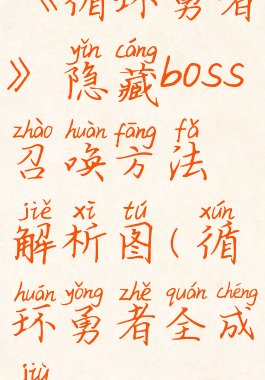 《循环勇者
yǐn cáng
》隐藏boss
zhào huàn fāng fǎ
召唤方法
jiě xī tú xún
解析图(循
huán yǒng zhě quán chéng
环勇者全成
jiù